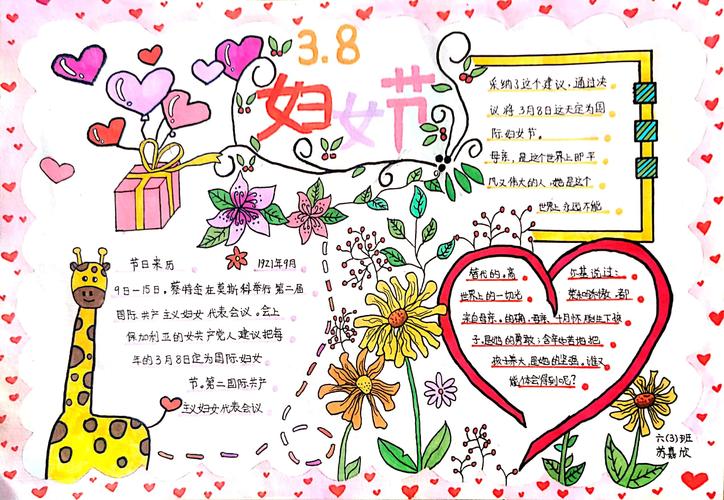 3.8
妇女节
节日来历
1921年9月
9日一15日,蔡特金在莫斯科举行第二届
国际共产主义妇女代表会议。会上
保加利亚的女共产党人建议把每
年的3月8日定为国际妇女
节。第二国际共产
主义妇女代表会议
采纳了这个建议,通过决
议将3月8日这天定为国
际妇女节。
母亲,是这个世界上即平
凡又伟大的人,她是这个
世界上永远不能
替代的。高
尔基说过:
世界上的一切光
荣和骄傲,都
来自母亲。的确,母亲,十月怀胎生下孩
子,是她的勇敢;含辛如苦地把
孩子养大,是她的坚强。谁又
能体会得到呢?
六(3)班
苏嘉欣